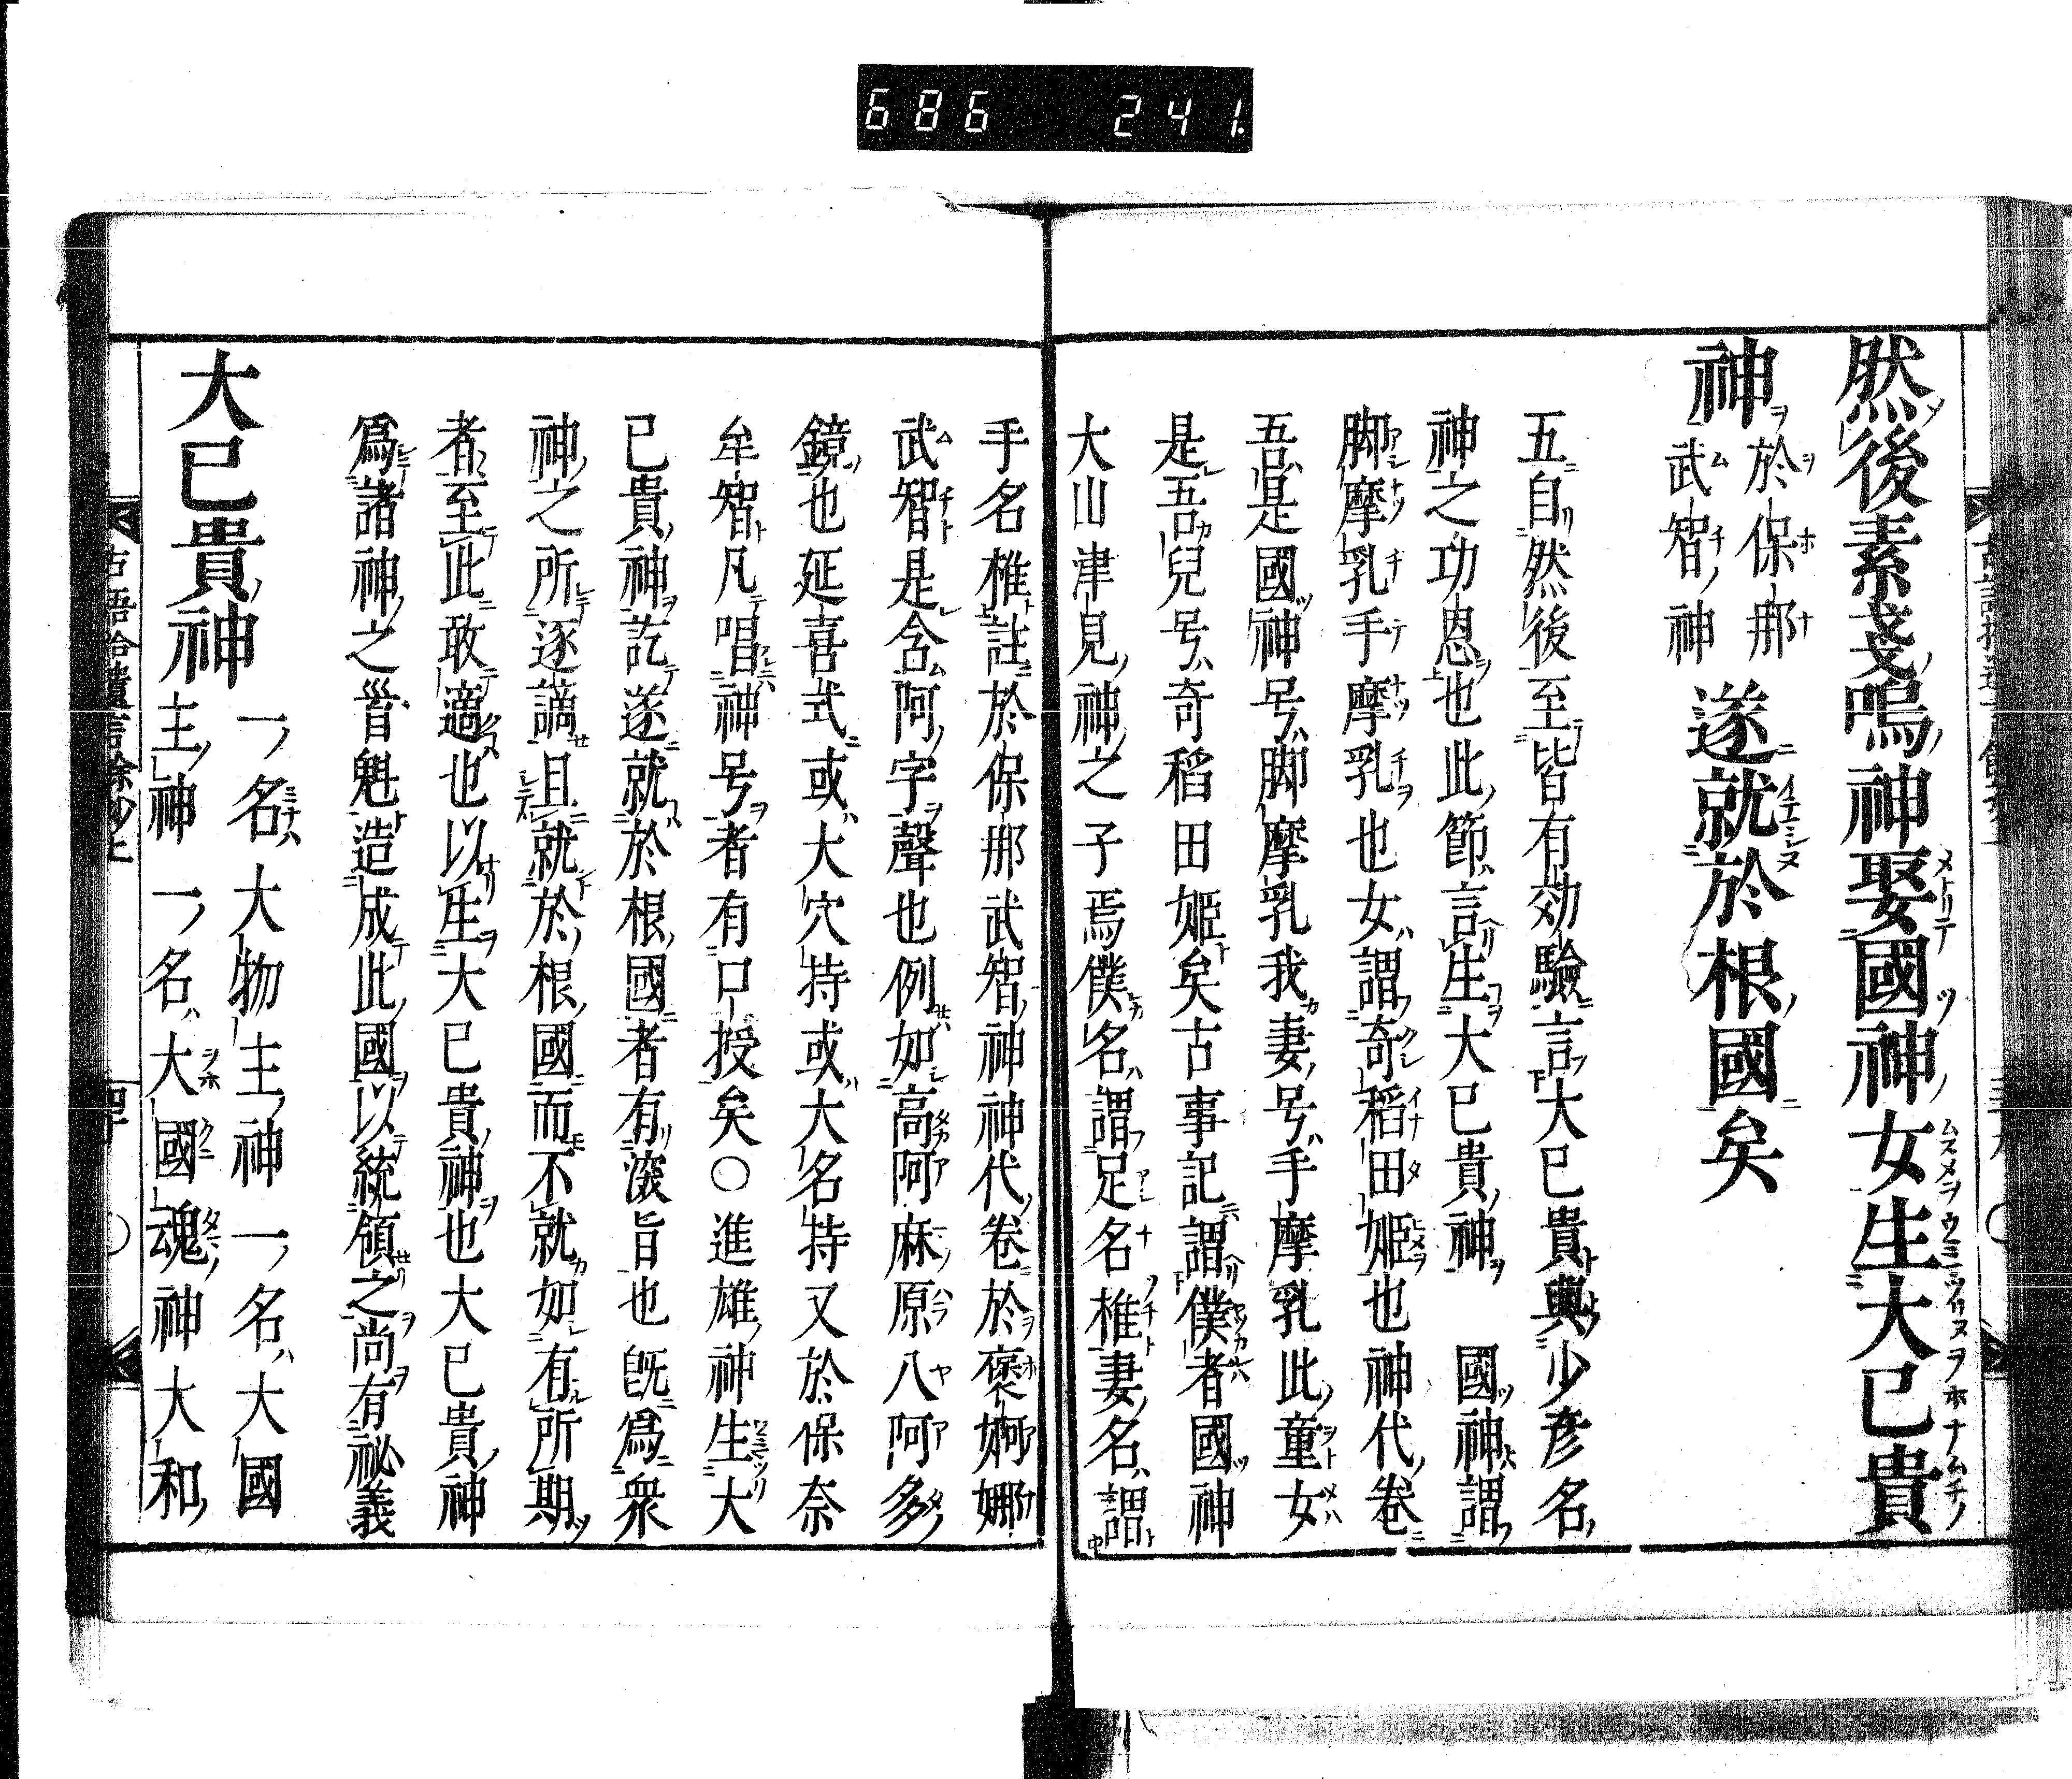 686 241.
然後素戔嗚神娶國神女生大已貴
神 於保那武智神 遂就於根國矣
五自然後至皆有効驗言大已貴與少彦名
神之功恩也此節言生大已貴神 國神謂
脚摩乳手摩乳也女謂奇稻田姬也神代卷
吾是國神号脚摩乳我妻号手摩乳此童女
是吾兒号奇稻田姬矣古事記謂僕者國神
大山津見神之子焉僕名謂足名椎妻名謂
手名椎註於保那武智神神代卷於褒婀娜
武智是含阿字聲也例如高阿麻原八阿多
鏡也延喜式或大穴持或大名持又於保奈
牟智凡唱神号者有口授矣○進雄神生大
已貴神訖遂就於根國者有深旨也既爲衆
神之所逐謫且就於根國而不就如有所期
者至此敢適也以生大已貴神也大已貴神
爲諸神之首魁造成此國以統領之尚有祕義
大已貴神 一名大物主神一名大國
主神一名大國魂神大和
古語拾遺言餘抄上